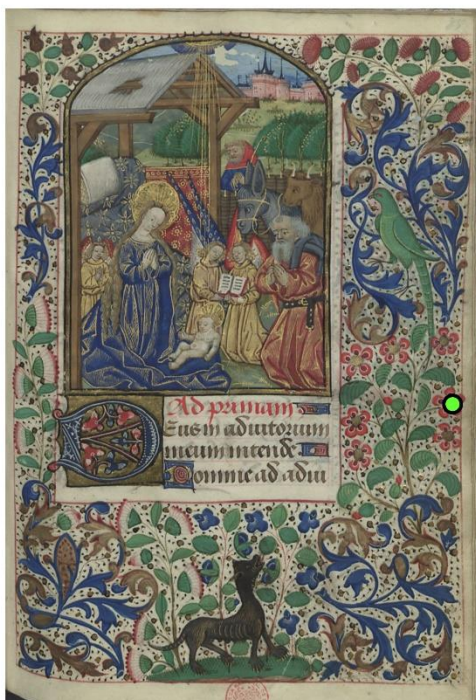 Ad primam
Deus in adiutorium
meum intende
Domine ad adiu